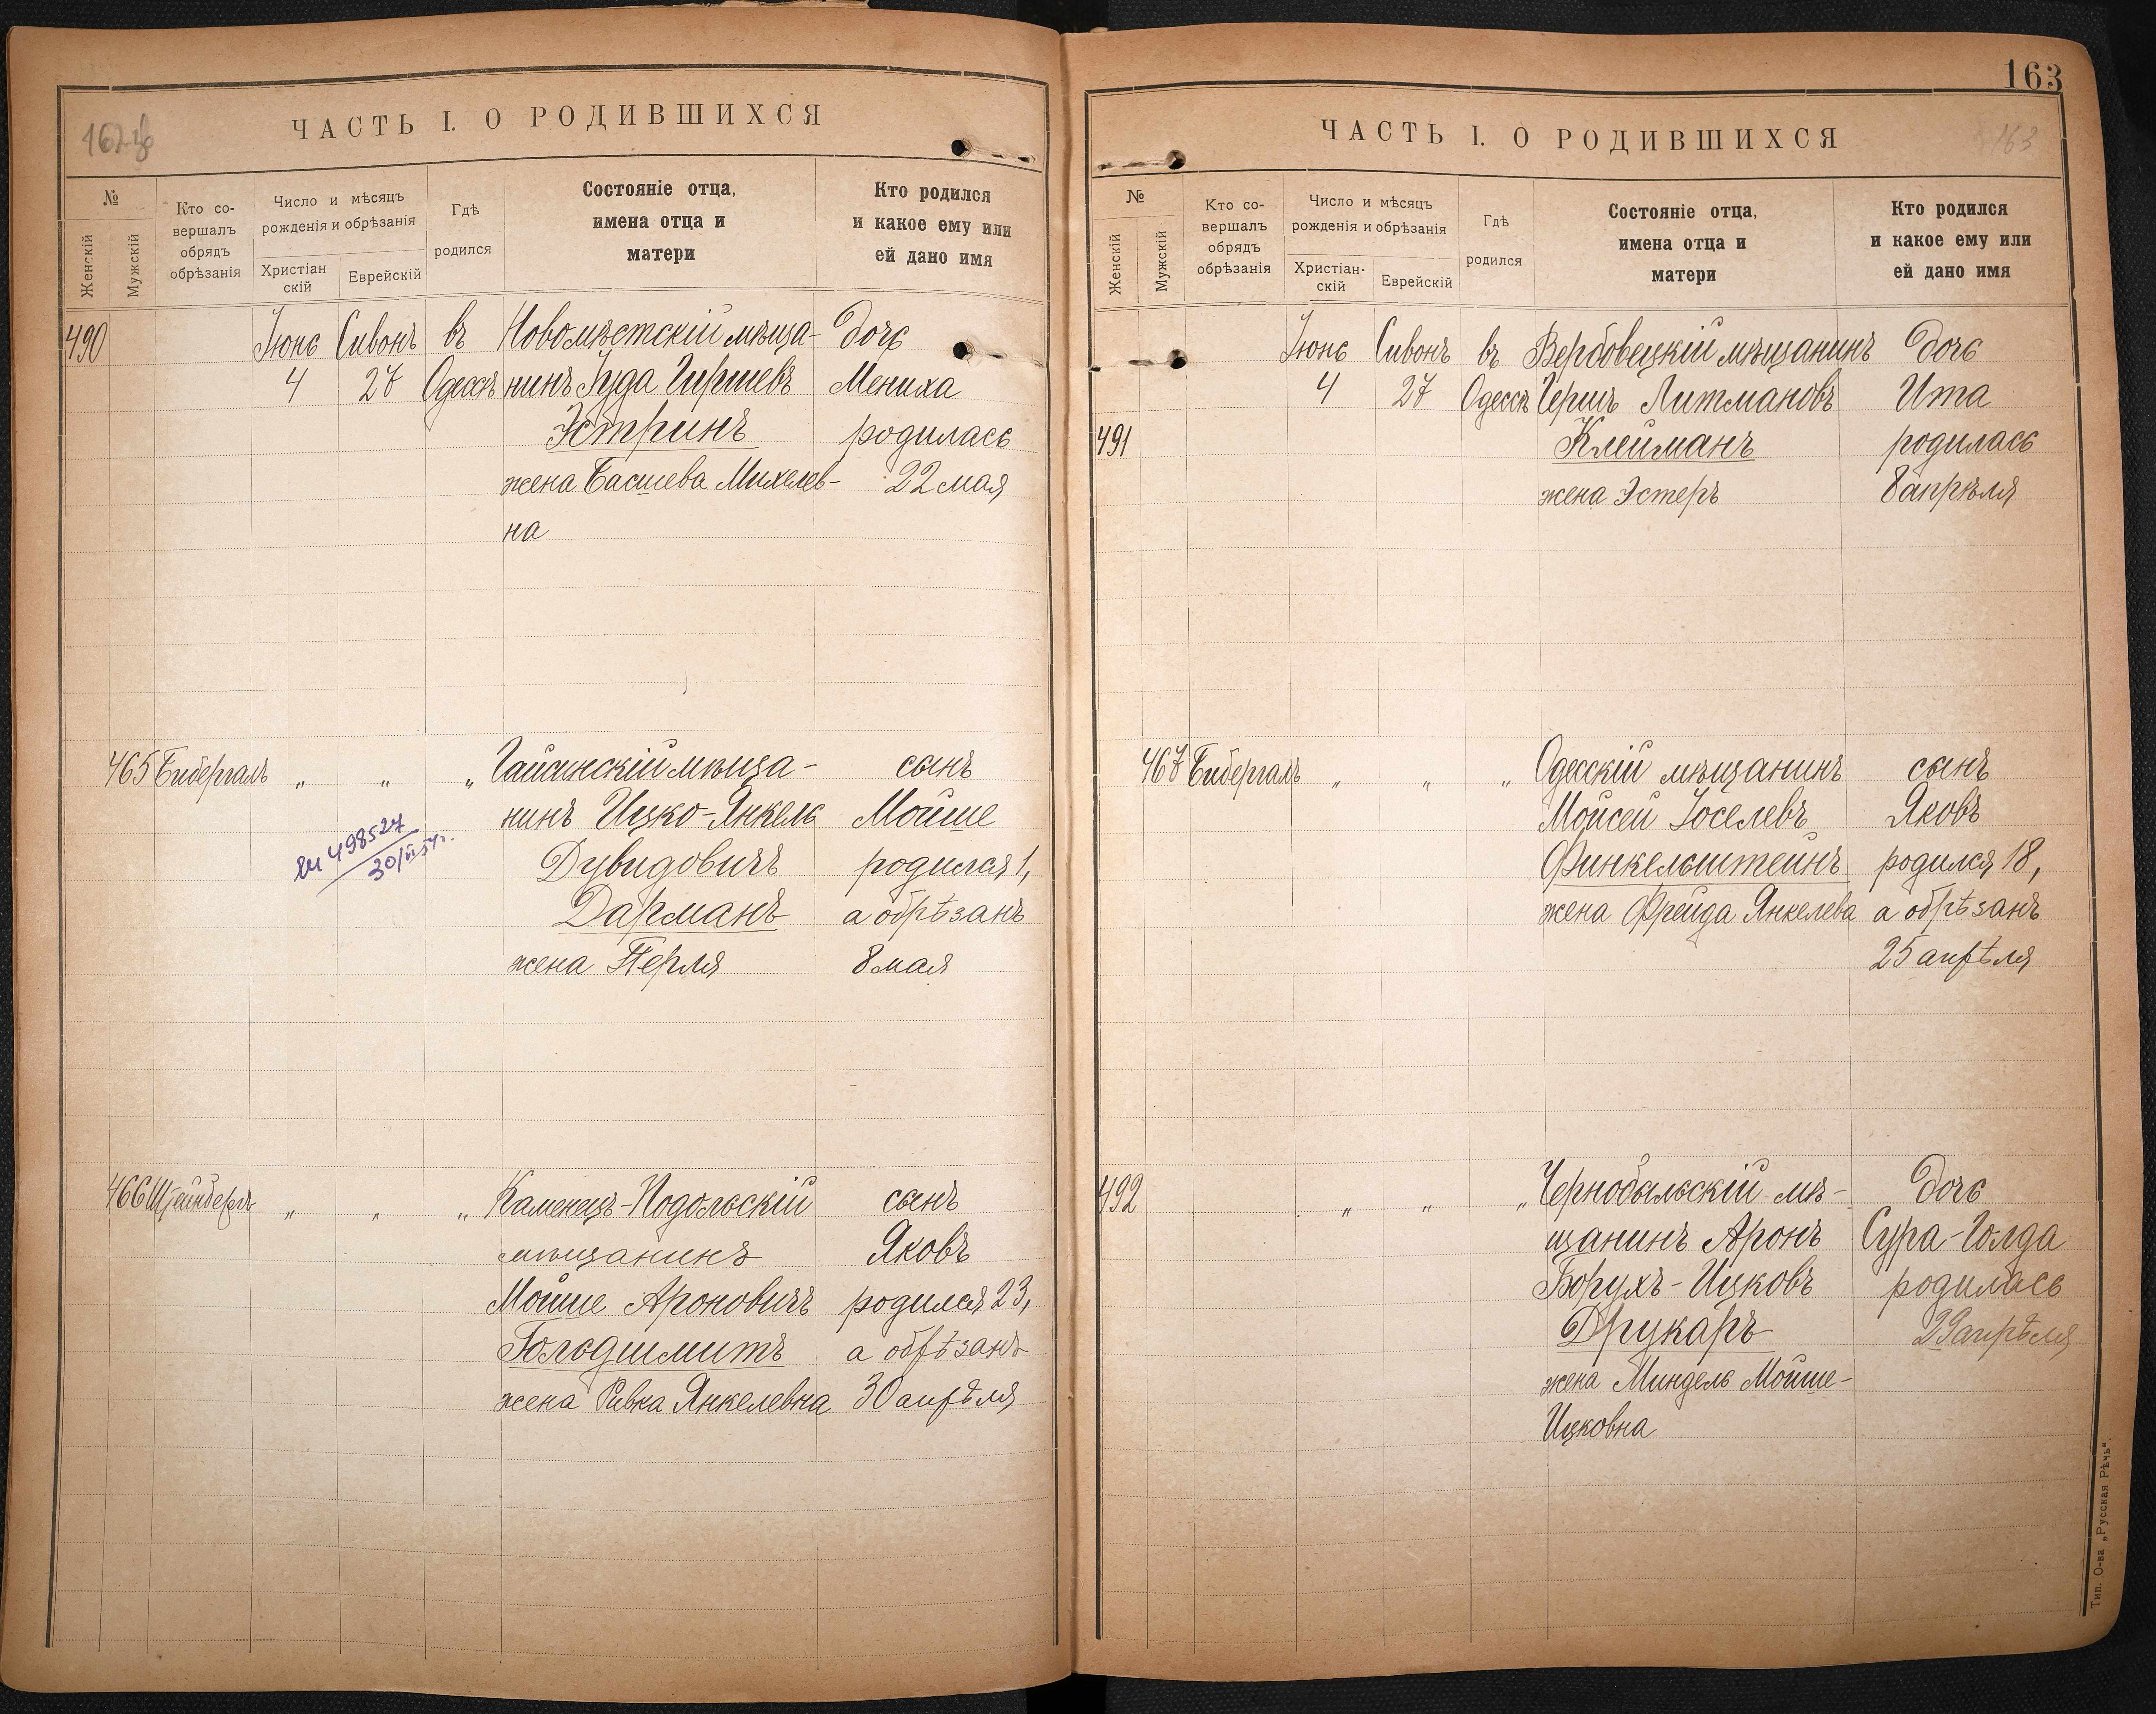 ЧАСТЬ I. О РОДИВШИХСЯ
№
Женскій
Мужскій
Кто со-
вершалъ
обрядъ
обрѣзанія
Число и мѣсяцъ
рожденія и обрѣзанія
Христіан
скій
Еврейскій
Гдѣ
родился
Состояніе отца,
имена отца и
матери
Кто родился
и какое ему или
ей дано имя
490 Іюнь Сивонъ въ Новомѣстскій мѣща- дочь
4 27 Одессѣ нинъ Іуда Гиршевъ Мениха
Эстринъ родилась
жена Басшева Михелев- 22 мая
на
465 Бибергаль " " " Гайсинскій мѣща- сынъ
нинъ Ицко-Янкель Мойше
Дувидовичъ родился 1,
Дарманъ а обрѣзанъ
жена Перля 8 мая
498527
466 Штейнбергъ " " " Каменецъ-Подольскій сынъ
мѣщанинъ Яковъ
Мойше Ароновичъ родился 23,
Гольдшмитъ а обрѣзанъ
жена Ривка Янкелевна 30 апрѣля
163
ЧАСТЬ I. О РОДИВШИХСЯ
163
№
Женскій
Мужскій
Кто со-
вершалъ
обрядъ
обрѣзанія
Число и мѣсяцъ
рожденія и обрѣзанія
Христіан-
скій
Еврейскій
Гдѣ
родился
Состояніе отца,
имена отца и
матери
Кто родился
и какое ему или
ей дано имя
Іюнь Сивонъ въ Вербовецкій мѣщанинъ дочь
4 27 Одессѣ Герш Литмановъ Ита
491 Клейманъ родилась
жена Эстеръ 8 апрѣля
467 Бибергаль " " " Одесскій мѣщанинъ сынъ
Мойсей Іоселевъ Яковъ
Финкельштейнъ родился 18,
жена Фрейда Янкелева а обрѣзанъ
25 апрѣля
492 " " " Чернобыльскій мѣ- дочь
щанинъ Аронъ Сура-Голда
Борухъ-Ицковъ родилась
Друкаръ 29 апрѣля
жена Миндель Мойше-
Ицковна
Тип. О-ва „Русская Рѣчь“.